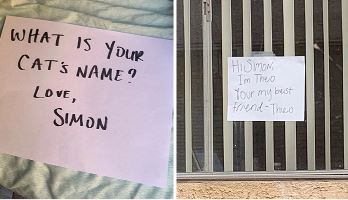 WHAT IS YOUR
CAT'S NAME?
LOVE,
SIMON
Hi Simon,
Im Theo
Your my best
friend-Theo